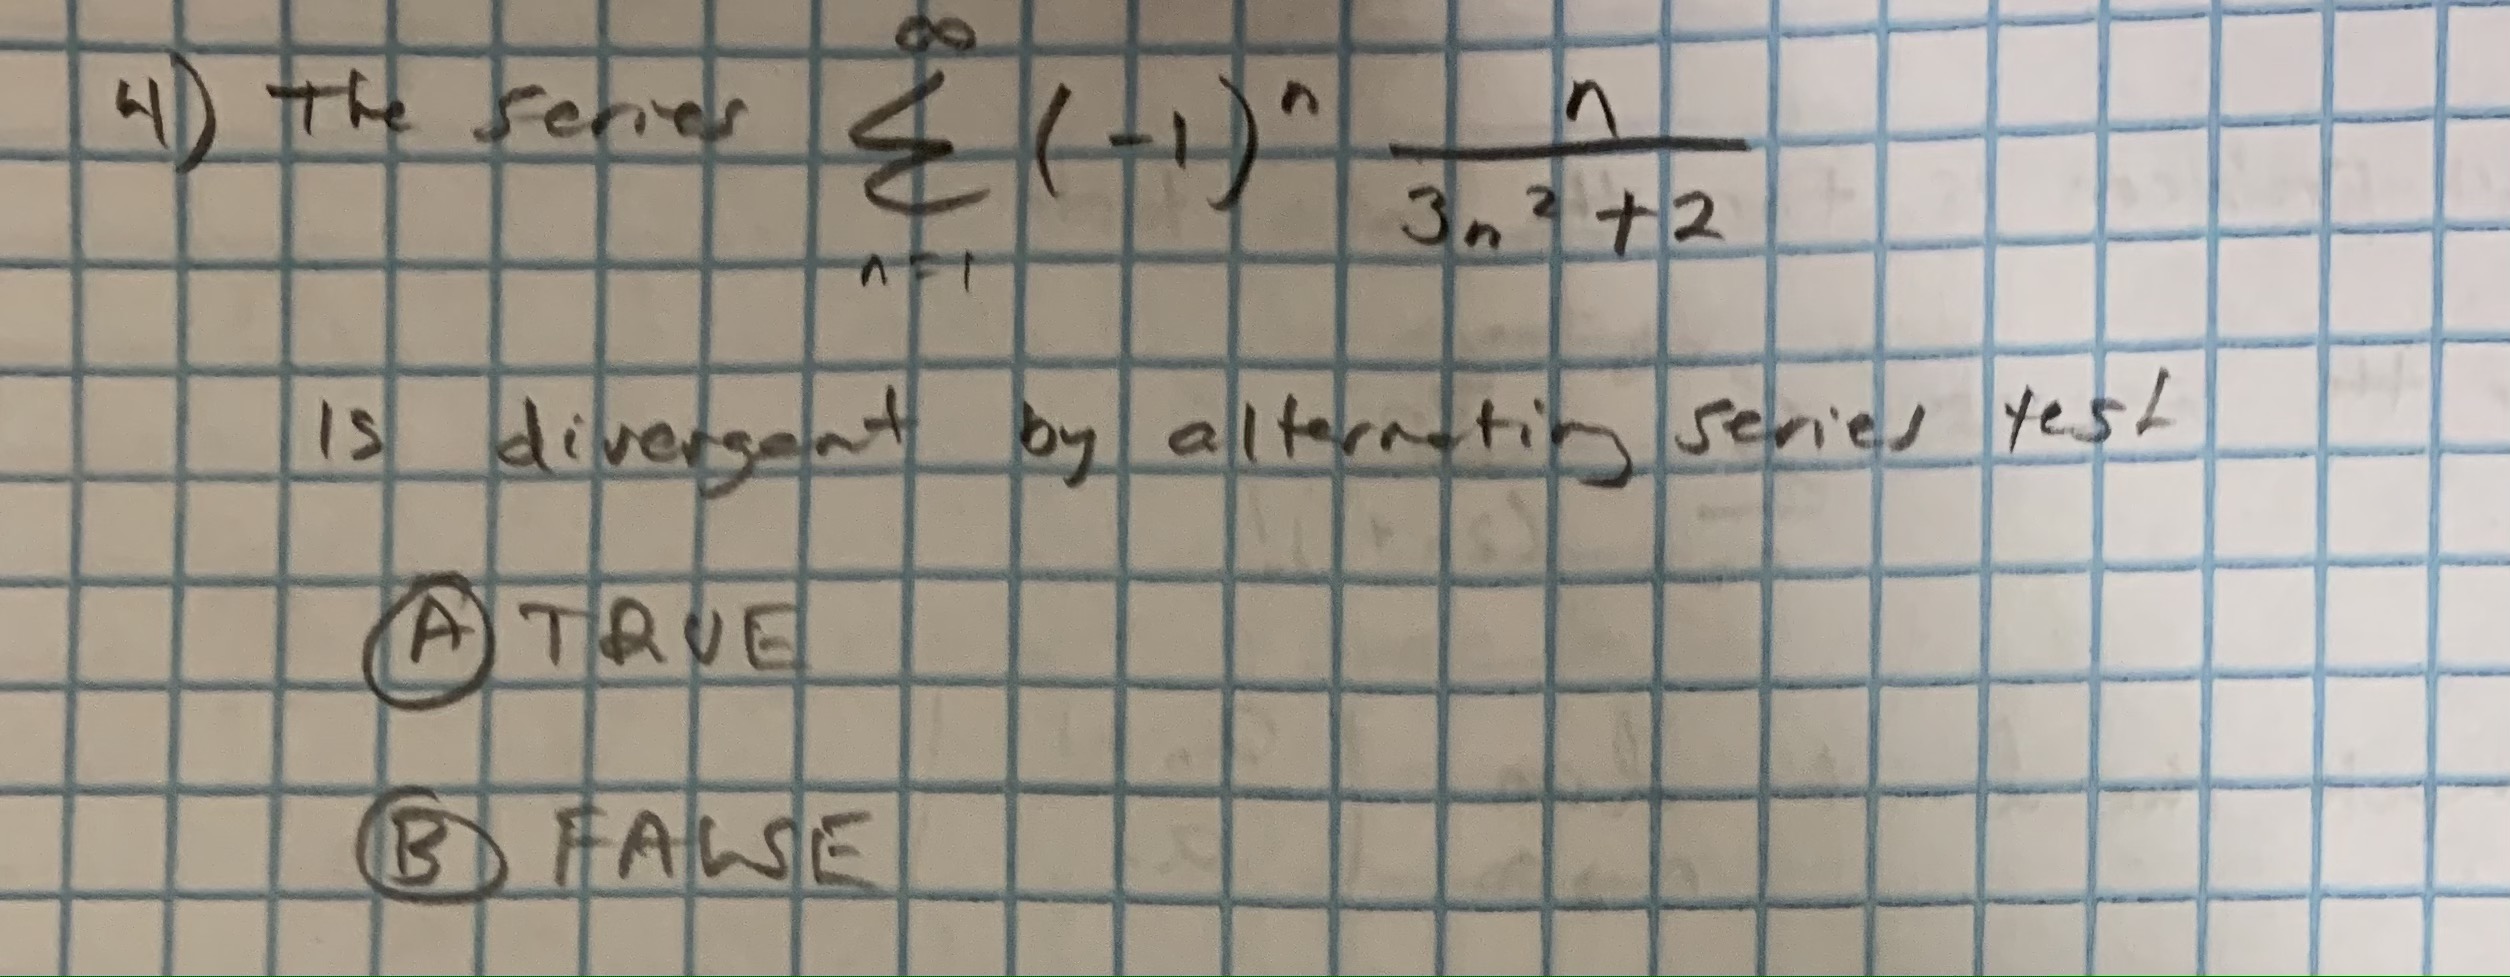 4) The series ∞ Σ n=1 (-1)^n n / 3n² + 2
Is divergent by alternating series test
A TRUE
B FALSE